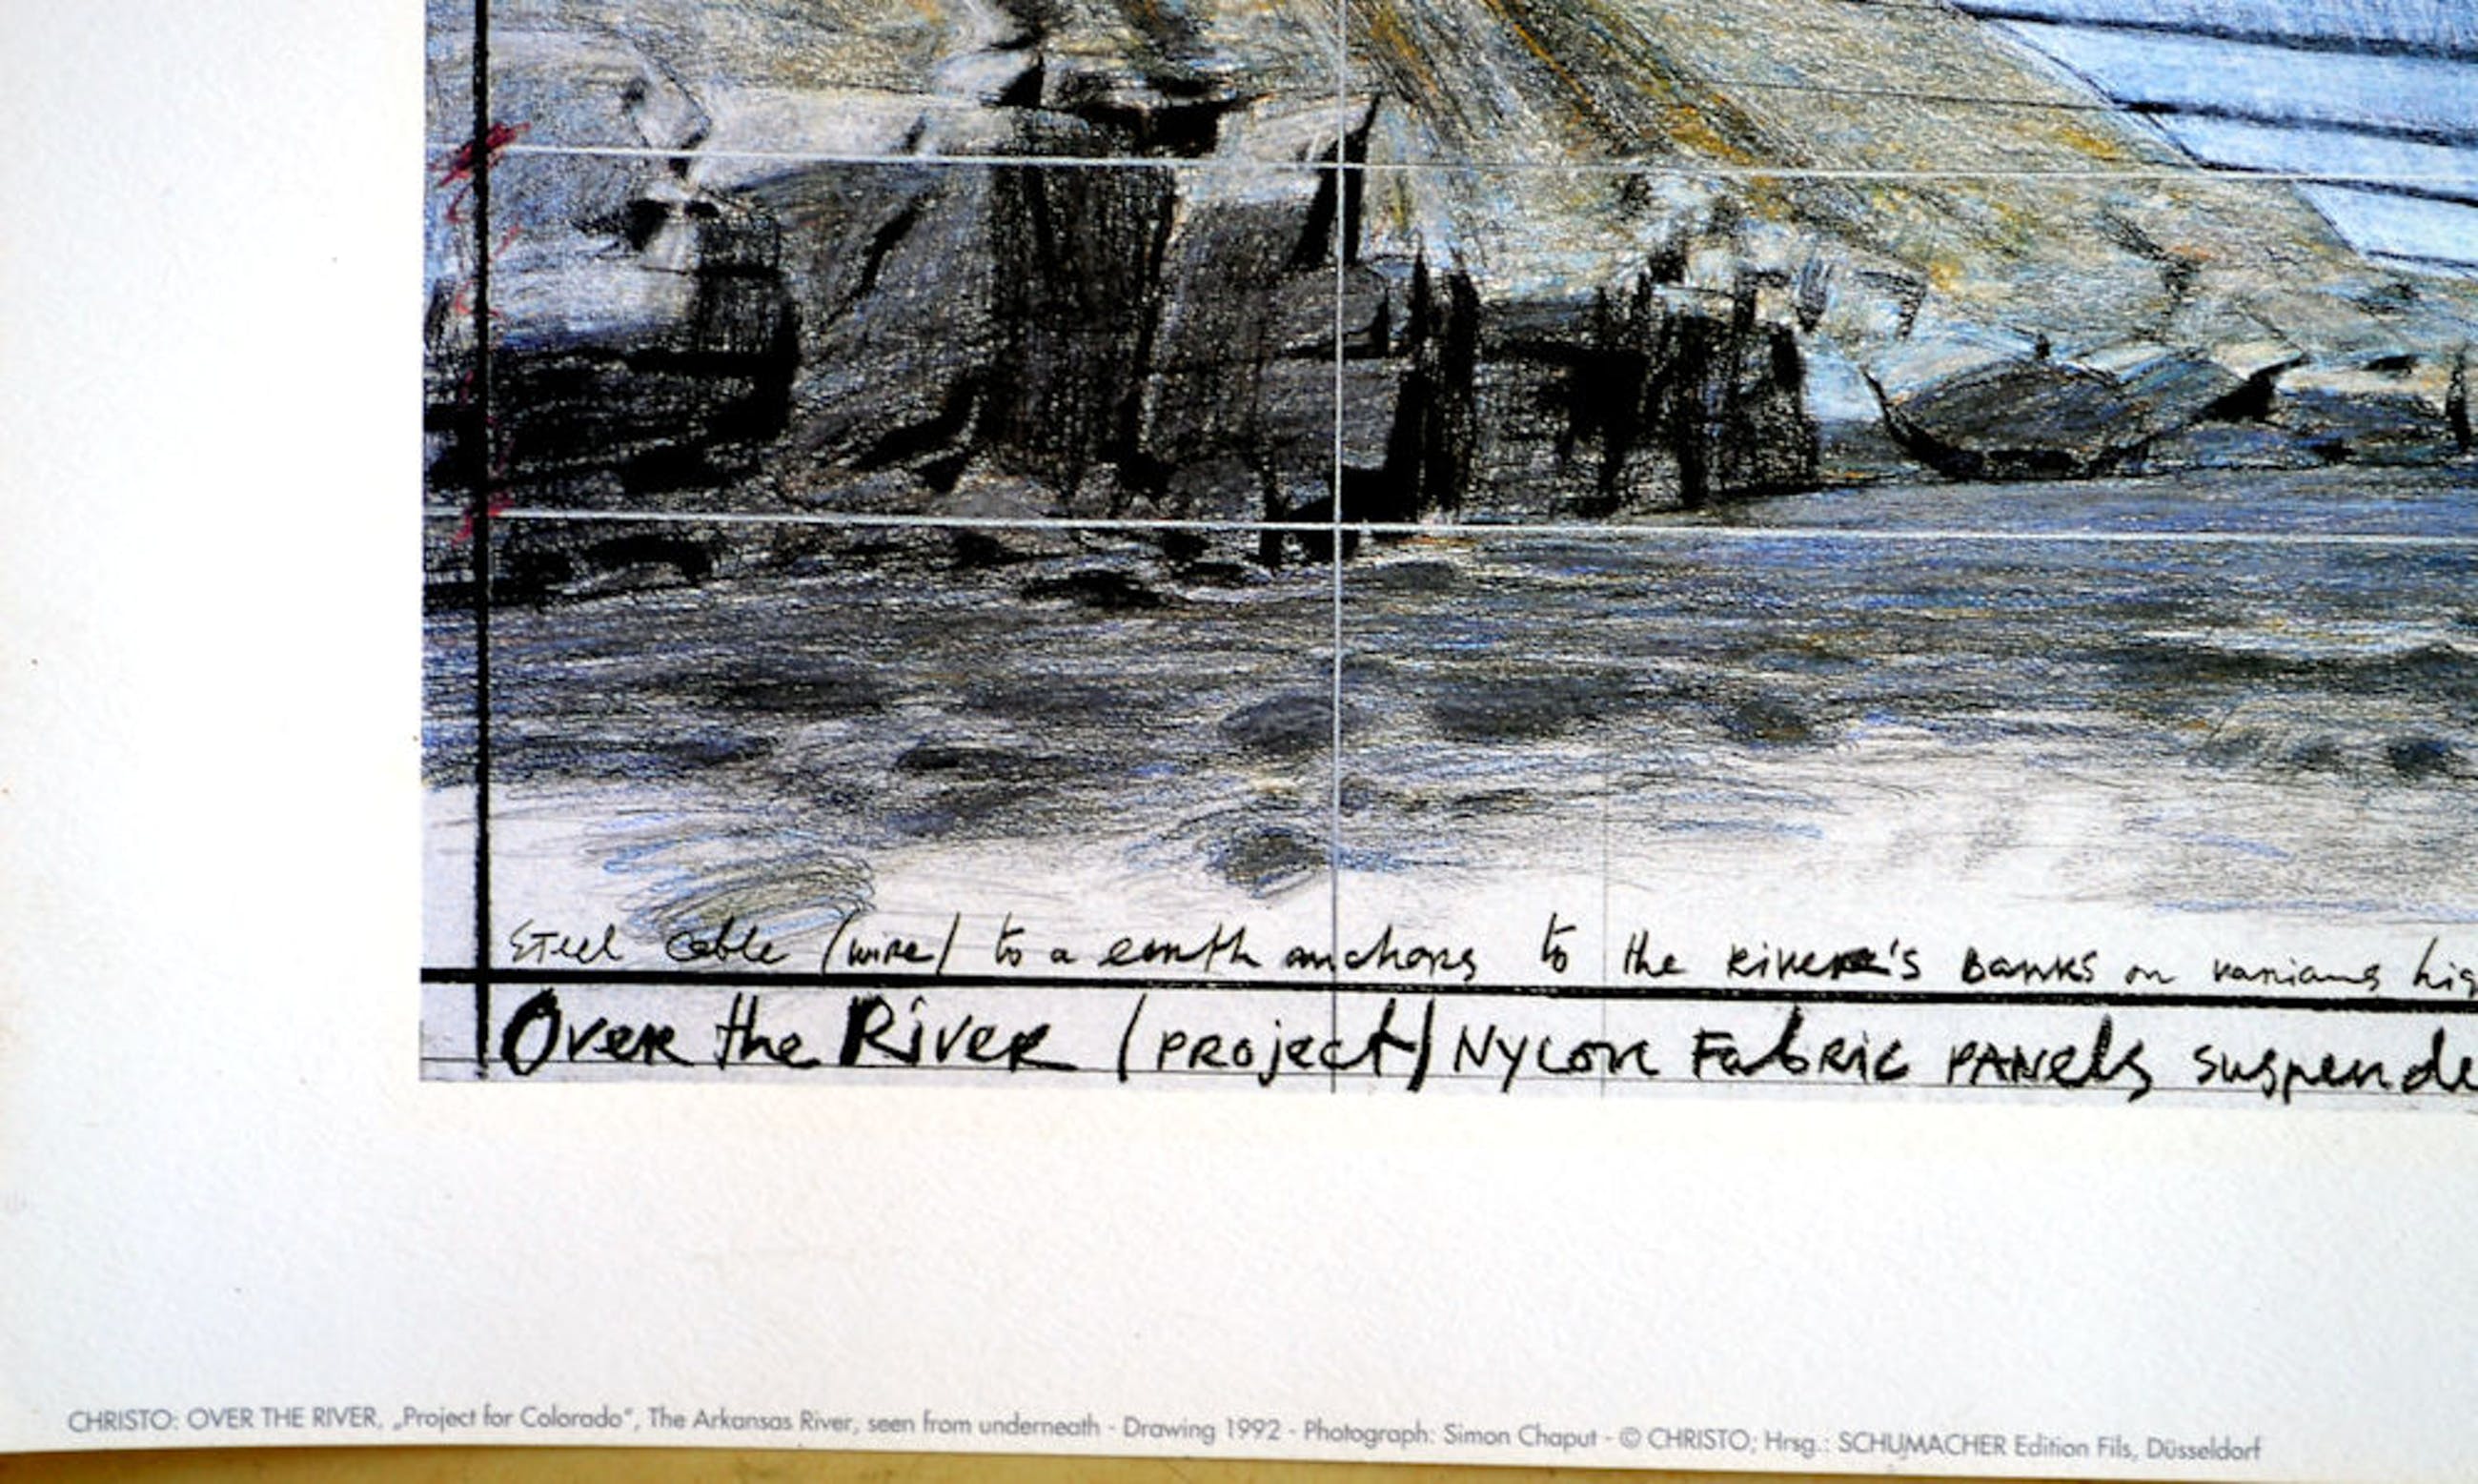 Steel cable (wire) to a earth anchors to the River's Banks on various hig
Over the River (PROject) Nylon Fabric PANels suspende
CHRISTO: OVER THE RIVER, „Project for Colorado“, The Arkansas River, seen from underneath - Drawing 1992 - Photograph: Simon Chaput - © CHRISTO; Hrsg.: SCHUMACHER Edition Fils, Düsseldorf